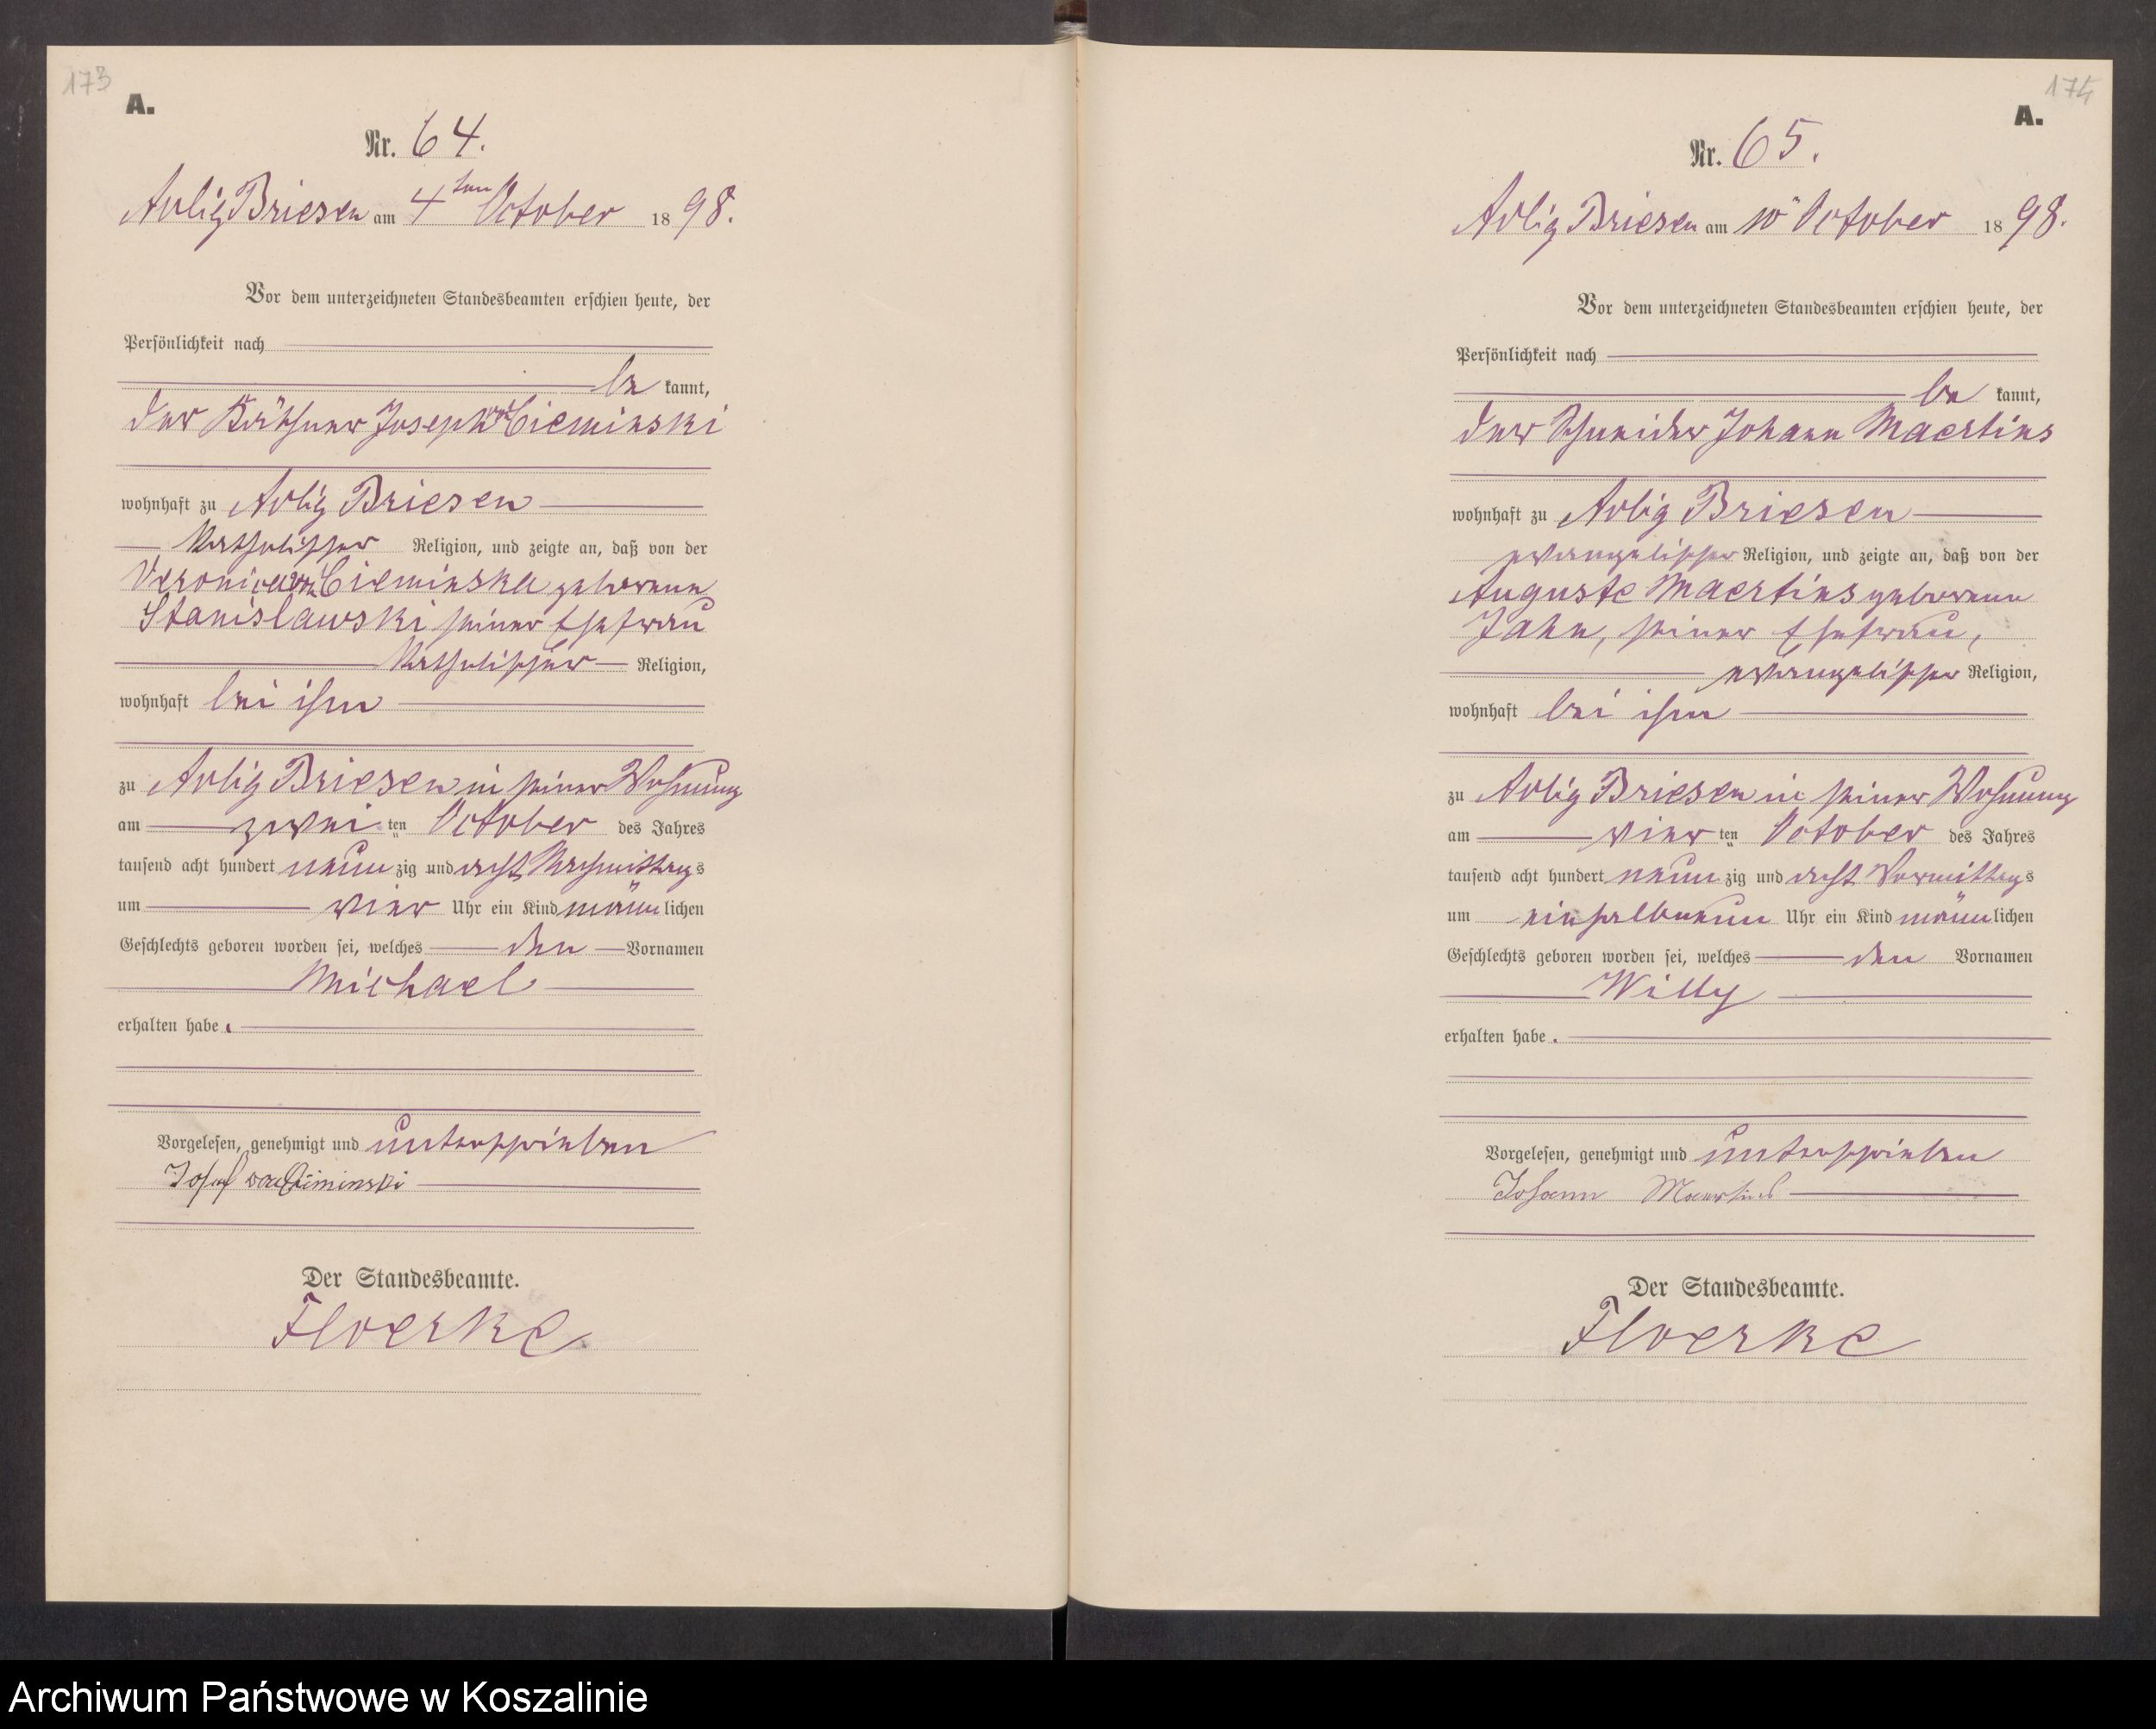 173
A.
Nr. 64.
Adlig Briesen am 4ten October 1898.
Vor dem unterzeichneten Standesbeamten erschien heute, der
Persönlichkeit nach
be kannt,
der Käthner Joseph von Cieminski
wohnhaft zu Adlig Briesen
katholischer Religion, und zeigte an, daß von der
Veronica von Cieminska geborene
Stanislawski seiner Ehefrau
katholischer Religion,
wohnhaft bei ihm
zu Adlig Briesen in seiner Wohnung
am zwei ten October des Jahres
tausend acht hundert neun zig und acht Nachmittags
um vier Uhr ein Kind männlichen
Geschlechts geboren worden sei, welches den Vornamen
Michael
erhalten habe.
Vorgelesen, genehmigt und unterschrieben
Josef von Ciminski
Der Standesbeamte.
Floerke
174
A.
Nr. 65.
Adlig Briesen am 10" October 1898.
Vor dem unterzeichneten Standesbeamten erschien heute, der
Persönlichkeit nach
be kannt,
der Schneider Johann Maertins
wohnhaft zu Adlig Briesen
evangelischer Religion, und zeigte an, daß von der
Auguste Maertins geborene
Jahn, seiner Ehefrau,
evangelischer Religion,
wohnhaft bei ihm
zu Adlig Briesen in seiner Wohnung
am vier ten October des Jahres
tausend acht hundert neun zig und acht Vormittags
um einhalbneun Uhr ein Kind männlichen
Geschlechts geboren worden sei, welches den Vornamen
Willy
erhalten habe.
Vorgelesen, genehmigt und unterschrieben
Johann Maertins
Der Standesbeamte.
Floerke
Archiwum Państwowe w Koszalinie